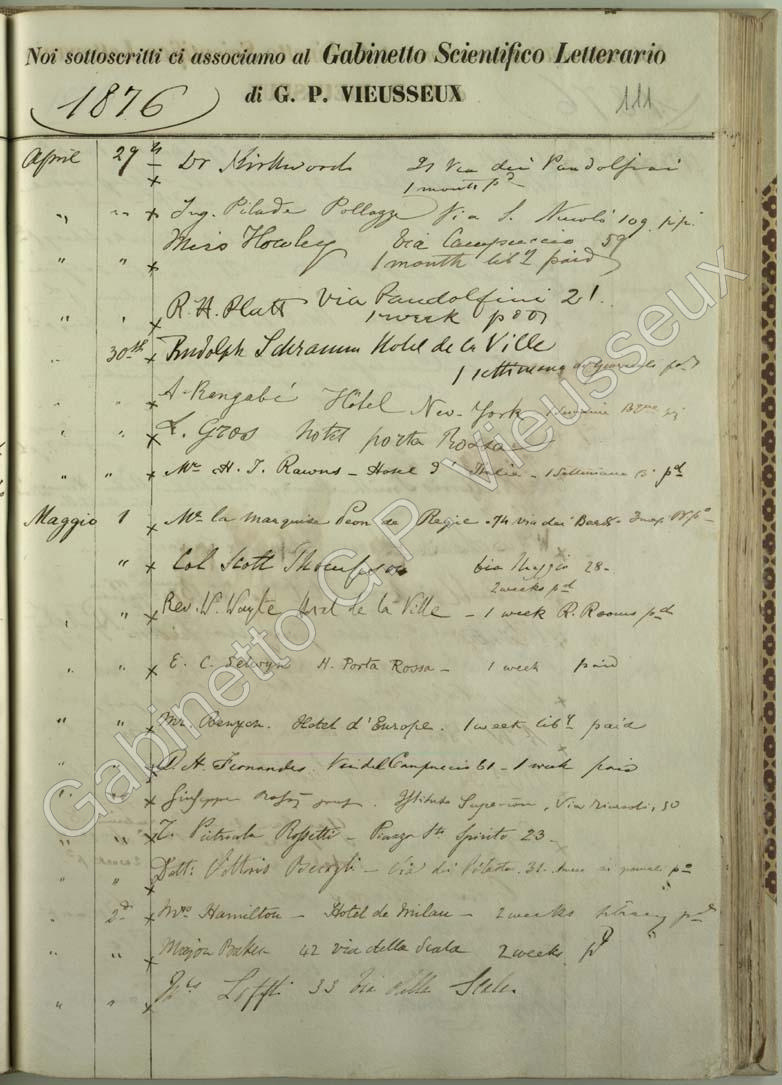 Noi sottoscritti ci associamo al Gabinetto Scientifico Letterario
di G. P. VIEUSSEUX
1876
111
April 29 x Dr Kirkwood 21 Via dei Pandolfini
1 month pd
" " x Ing. Pilade Via S. Niccolò 109 p.p.
" " x Miss Howley Via Campuccio 59
1 month liby paid
" " x R. H. Platt Via Pandolfini 21.
1 week
" 30th x Rudolph Schramm Hotel de la Ville
1 settimana
" " x A. Rangabé Hôtel New-York
" " x L. Gros hotel porta Rossa
" " x Mr H. J. Hotel d'Italie - 1 Settimana pd
Maggio 1 x la marquise de - 74 via dei Bardi -
" x Col Scott Thompson Via Maggio 28 -
2 weeks pd
" x Rev. W. Wayte Hotel de la Ville - 1 week R. Rooms pd
" " x E. C. Selwyn H. Porta Rossa - 1 week paid
" " x Mr. Benyon. Hotel d'Europe. 1 week liby paid
" " x A. Fernandes Via del Campuccio 61 - 1 week paid
" " x Giuseppe Istituto Superiore, Via Ricasoli, 50
" " x T. Pietrocola Rossetti - Piazza Sto Spirito 23 -
" " x Dott: Via dei 31.
" 2d x Mrs Hamilton - Hotel de Milan - 2 weeks
" " x Major Baker 42 via della Scala 2 weeks pd
" " x 33 Via della Scala
Gabinetto G.P. Vieusseux